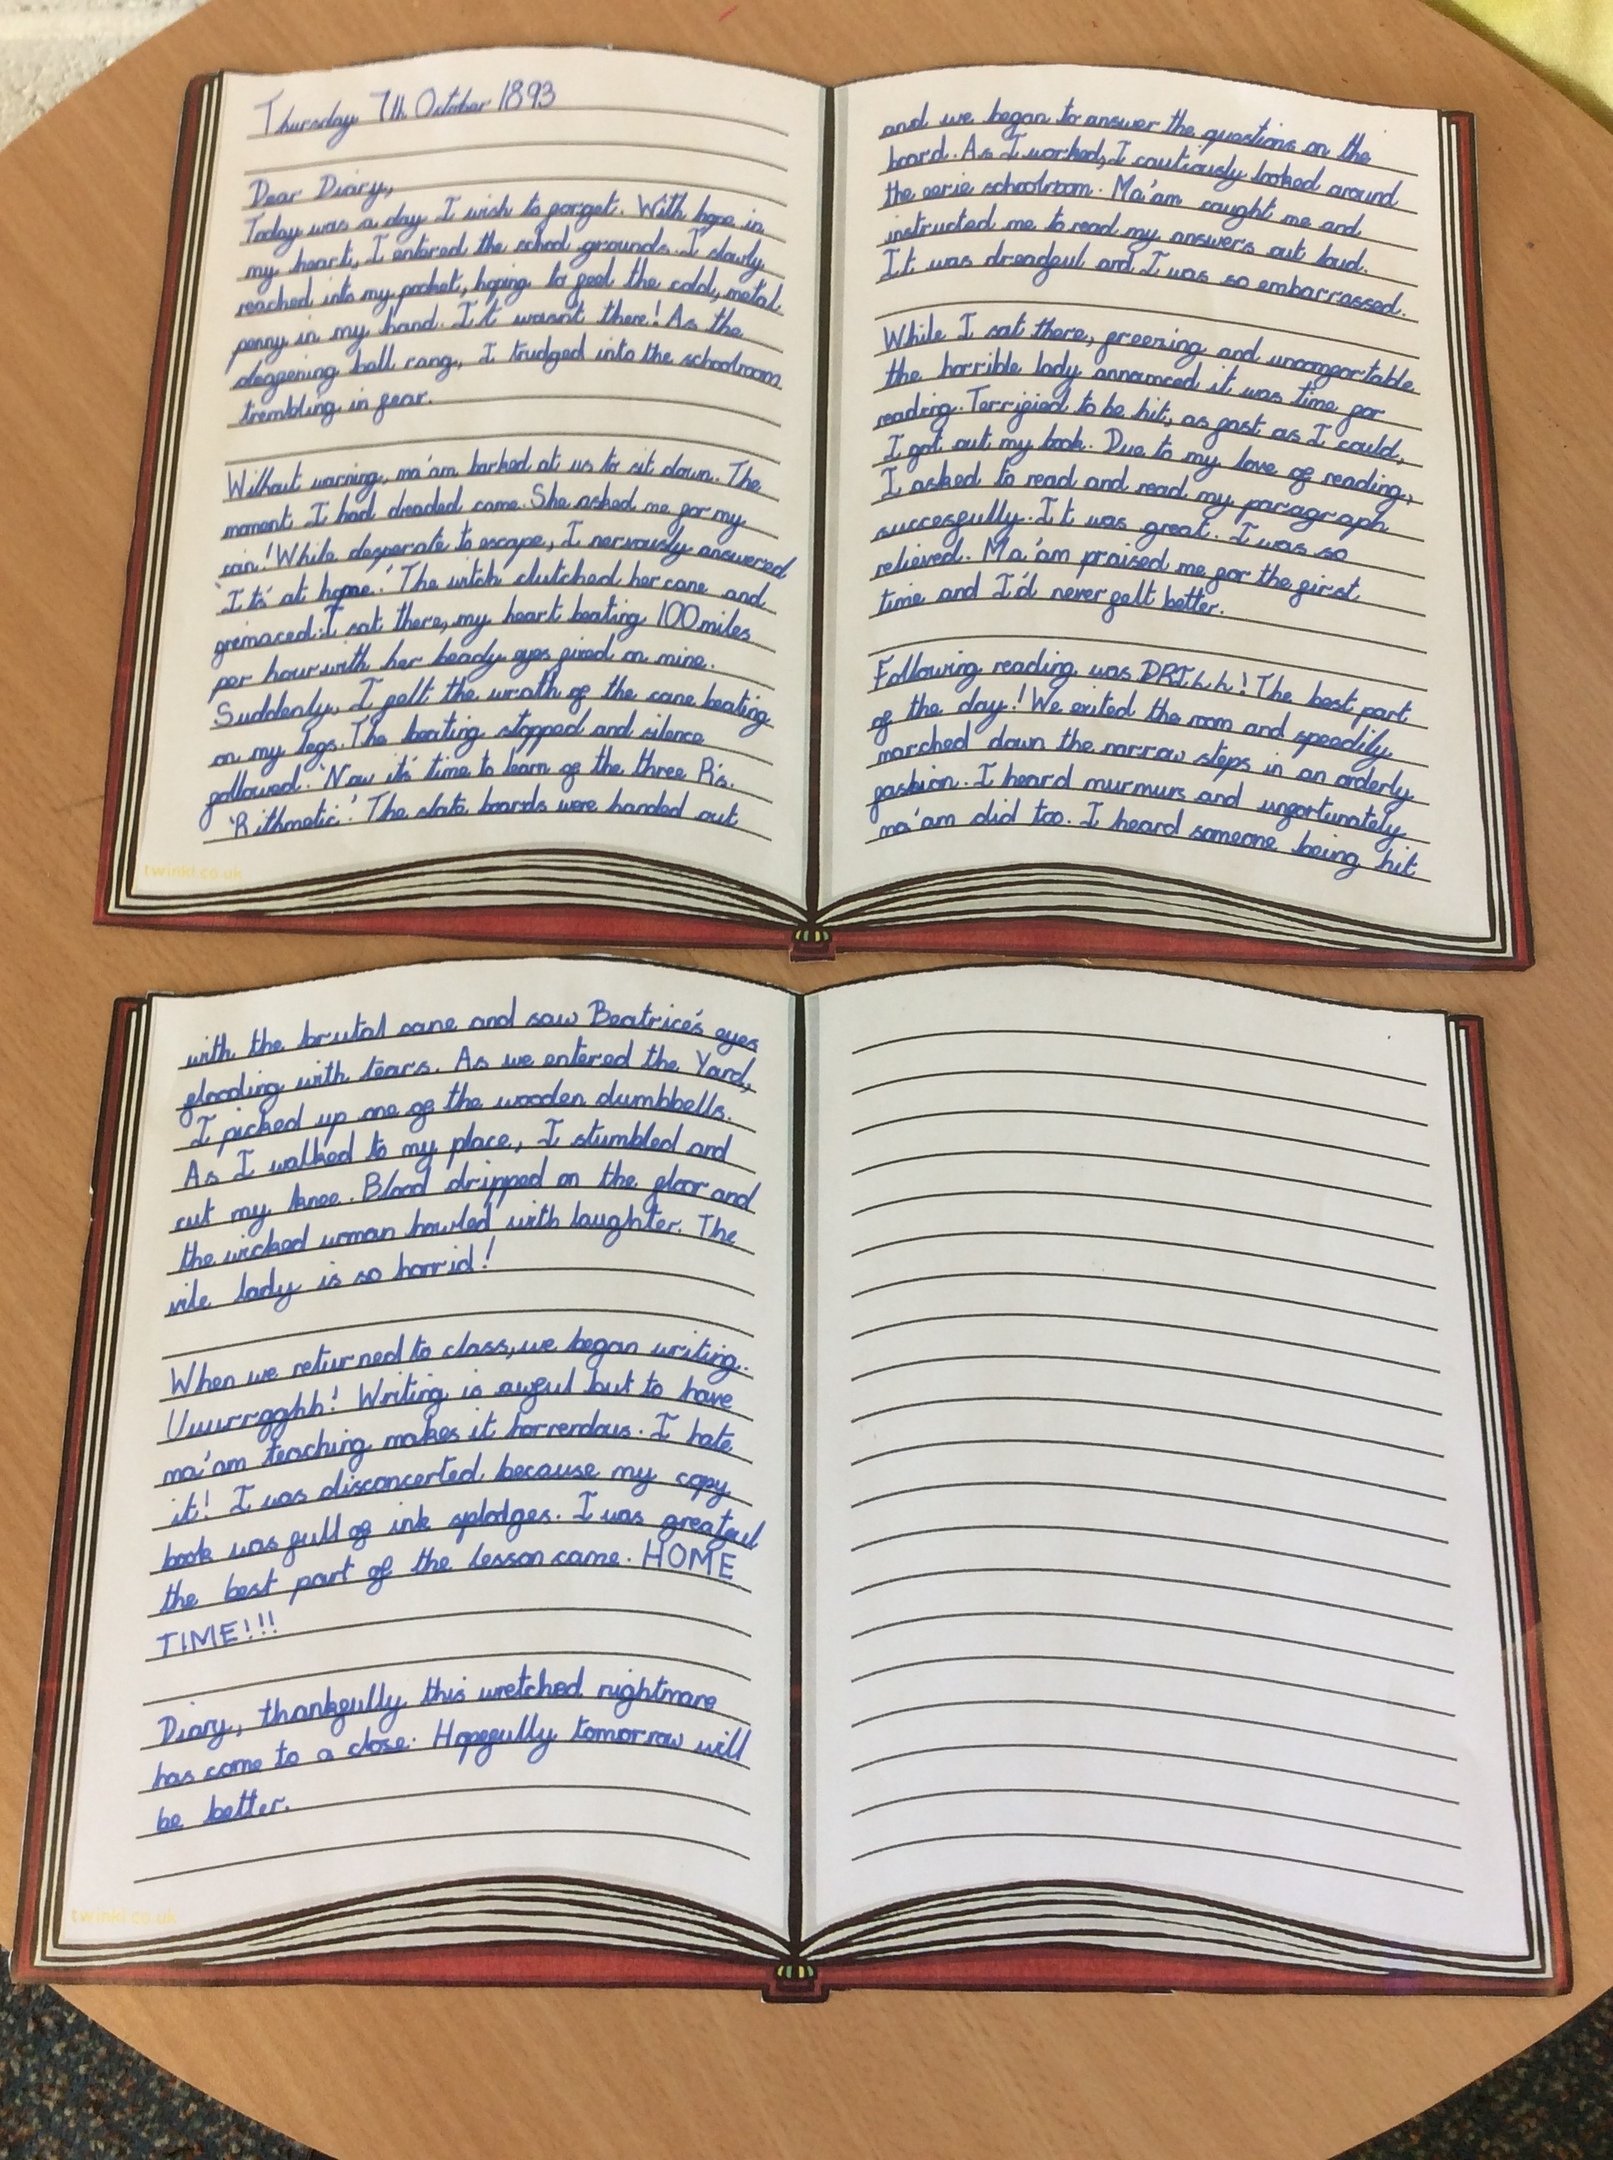 Thursday 7th October 1893
Dear Diary,
Today was a day I wish to forget. With hope in
my heart, I entered the school grounds. I slowly
reached into my pocket, hoping to feel the cold, metal
penny in my hand. It wasn't there! As the
deafening bell rang, I trudged into the schoolroom
trembling in fear.
Without warning, ma'am barked at us to sit down. The
moment I had dreaded came. She asked me for my
coin! While desperate to escape, I nervously answered
'Its' at home.' The witch clutched her cane and
gremaced. I sat there, my heart beating 100 miles
per hour with her beady eyes fixed on mine.
Suddenly, I felt the wrath of the cane beating
on my legs. The beating stopped and silence
followed. 'Now its' time to learn of the three R's.
'Rithmetic.' The slate boards were handed out
and we began to answer the questions on the
board. As I worked, I cautiously looked around
the eerie schoolroom. Ma'am caught me and
instructed me to read my answers out loud.
It was dreadful and I was so embarrassed.
While I sat there, freezing and uncomfortable
the horrible lady announced it was time for
reading. Terrified to be hit, as fast as I could,
I got out my book. Due to my love of reading,
I asked to read and read my paragraph
succesfully. It was great. I was so
relieved. Ma'am praised me for the first
time and I'd never felt better.
Following reading was DRILL! The best part
of the day! We exited the room and speedily
marched down the narrow steps in an orderly
fashion. I heard murmurs and unfortunately
ma'am did too. I heard someone being hit
twinkl.co.uk
with the brutal cane and saw Beatrice's eyes
flooding with tears. As we entered the Yard,
I picked up one of the wooden dumbbells.
As I walked to my place, I stumbled and
cut my knee. Blood dripped on the floor and
the wicked woman howled with laughter. The
vile lady is so horrid!
When we returned to class, we began writing.
Uuurrgghh! Writing is awful but to have
ma'am teaching makes it horrendous. I hate
it! I was disconcerted because my copy
book was full of ink splodges. I was greatful
the best part of the lesson came. HOME
TIME!!!
Diary, thankfully this wretched nightmare
has come to a close. Hopefully tomorrow will
be better.
twinkl.co.uk